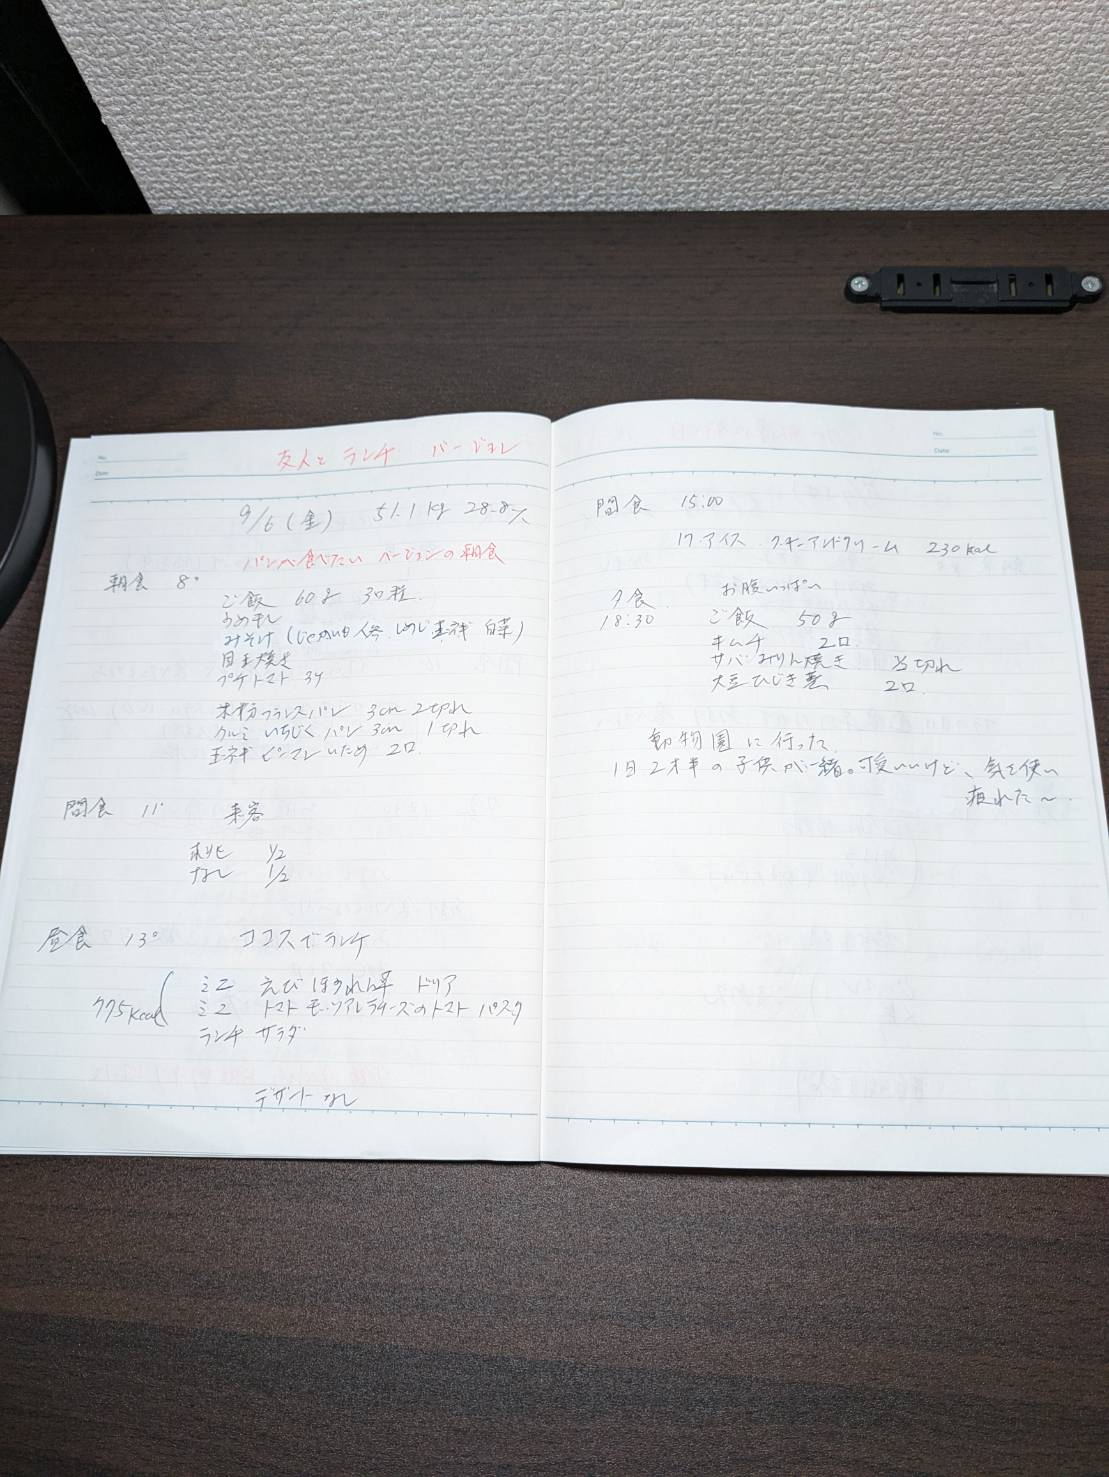 No.
Date
友人と ランチ バージョン
9/6 (金) 51.1 kg 28.8%
パンへ食べたい バージョンの朝食
朝食 8°
ご飯 60g 30粒
うめ干し
みそ汁 (じゃがいも 人参 しめじ 玉ネギ 白菜)
目玉焼き
プチトマト 3ヶ
米粉フランスパン 3cm 2切れ
クルミ いちじく パン 3cm 1切れ
玉ネギ ピーマン いため 2口
間食 11° 来客
1/2
なし 1/2
昼食 13° ココスでランチ
775kcal
ミニ えび ほうれん草 ドリア
ミニ トマト モッツアレラチーズのトマト パスタ
ランチ サラダ
デザート なし
No.
Date
間食 15:00
17アイス クッキーアンドクリーム 230kcal
夕食 お腹いっぱい
18:30 ご飯 50g
キムチ 2口
サバ みりん焼き 切れ
大豆ひじき煮 2口
動物園に行った
1日2才半の子供が一緒。可愛いいけど、気を使い
疲れた〜